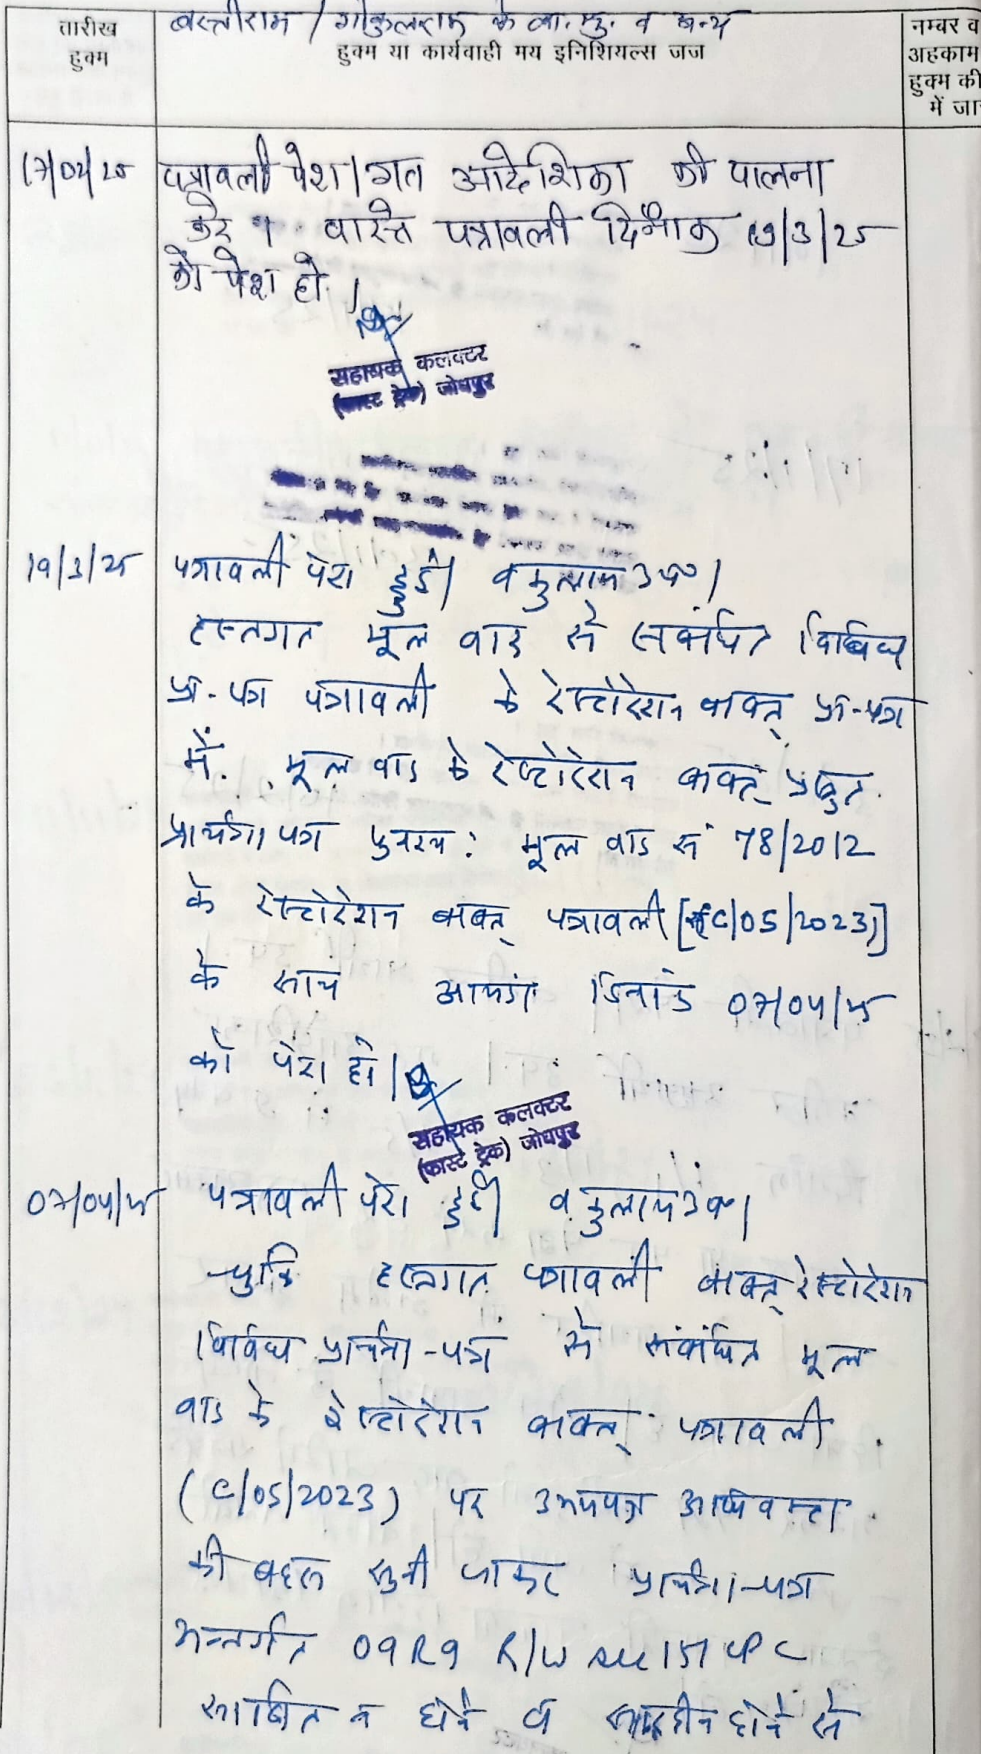 तारीख
हुक्म
बस्तीराम / गोकुलराम के का. मु. व अन्य
हुक्म या कार्यवाही मय इनिशियल्स जज
नम्बर व
अहकाम
हुक्म की
में जा
17/02/25 पत्रावली पेश। गत आदेशिका की पालना
वास्ते पत्रावली दिनाँक 19/3/25
को पेश हो।
सहायक कलक्टर
(फास्ट ट्रेक) जोधपुर
19/3/25 पत्रावली पेश हुई। वकुलाय उप०।
हस्तगत मूल वाद से संबंधित विविध
प्रा.-पत्र पत्रावली के रेस्टोरेशन बाबत् प्रा.-पत्र
में मूल वाद के रेस्टोरेशन बाबत् प्रस्तुत
प्रार्थना पत्र मूल वाद सं 78/2012
के रेस्टोरेशन बाबत् पत्रावली [C/05/2023]
के साथ आयंदा दिनांक 07/04/25
को पेश हो।
सहायक कलक्टर
(फास्ट ट्रेक) जोधपुर
07/04/25 पत्रावली पेश हुई। वकुलाय उप०।
चूंकि हस्तगत पत्रावली बाबत् रेस्टोरेशन
विविध प्रार्थना-पत्र से संबंधित मूल
वाद के रेस्टोरेशन बाबत् पत्रावली
(C/05/2023) पर उभयपक्ष अधिवक्ता
की बहस सुनी जाकर प्रार्थना-पत्र
अन्तर्गत O9R9 R/W 151 CPC
साबित न होने व सारहीन होने से